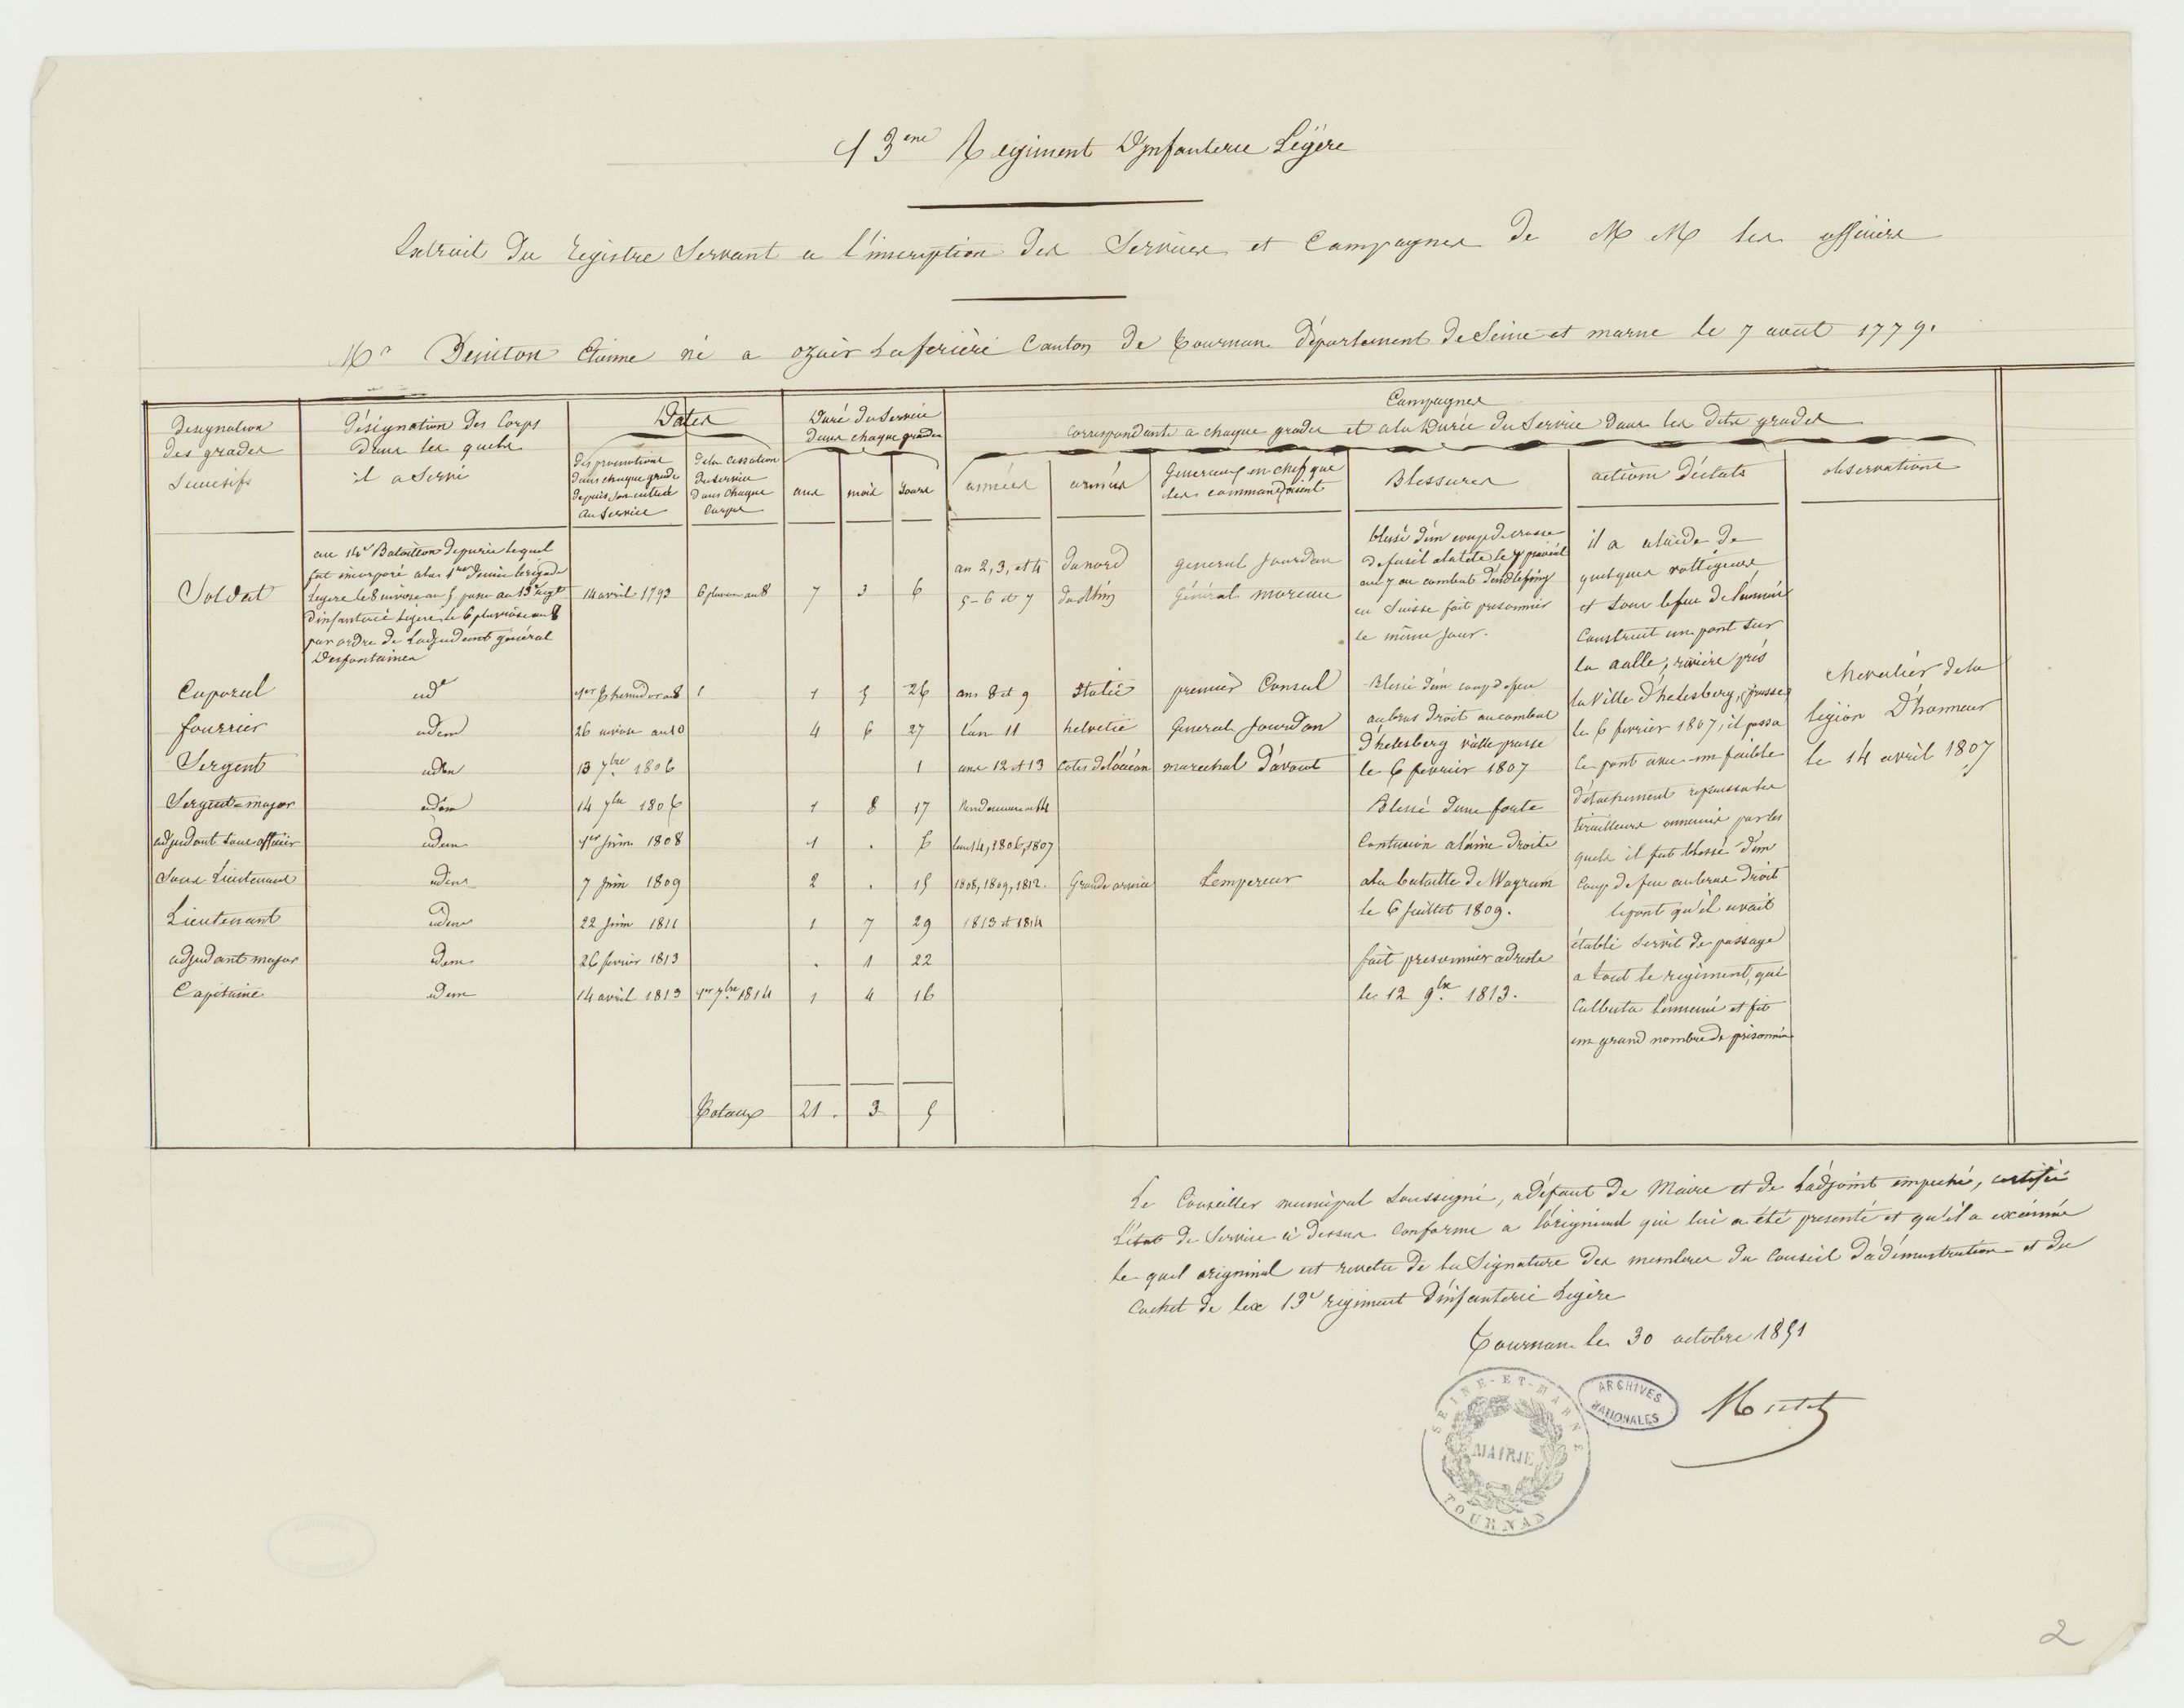 13eme Regiment D'Infanterie Légère
Extrait du Registre Servant a l'inscription des Services et Campagnes de M M les officiers
Mr Deniton Etienne né a ozoir Laferière Canton de Tournan département de Seine et marne le 7 aout 1779.
designation des grades Successifs
désignation des Corps dans les quels il a Servi
Dates
des promotions dans chaque grade depuis son entrée au Service
de la Cessation du service dans chaque Corps
Duré du Service dans chaque grades
ans
mois
Jours
Campagnes
correspondants a chaque grades et a la Durée du Service dans les dits grades
années
armées
Generaux en chef que les commandaient
Blessures
actions d'éclats
observations
Soldat
au 14e Bataillon de paris lequel
fut incorporé a la 1re demie brigade
Légere le 8 nivose an 5 passé au 13e regt
d'infanterie légere le 6 pluviose an 8
par ordre de l'adjudant général
Desfontaines
14 avril 1793
6 pluviose an 8
7 3 6
an 2, 3, et 4 du nord général Jourdan
5-6 et 7 du Rhin Général moreau
blessé d'un coup de crosse
de fusil a la tete le 7 prairial
an 7 au combat
en Suisse fait prisonnier
le même jour.
Caporal ide 1er Thermidor an 8 1 5 26 ans 8 et 9 Italie premier Consul
fourrier idem 26 nivose an 10 4 6 27 l'an 11 helvetie General Jourdan
Sergent idem 13 7bre 1806 1 ans 12 et 13 Cotes de l'océan marechal d'avout
Sergent-major idem 14 7bre 1806 1 8 17 Vendemiaire an 14
adjudant Sous officier idem 1er Juin 1808 1 . 6 l'an 14, 1806, 1807
Sous Lieutenant idem 7 Juin 1809 2 . 15 1808, 1809, 1812. Grande armée L'empereur
Lieutenant idem 22 Juin 1811 1 7 29 1813 et 1814
adjudant major idem 26 fevrier 1813 . 1 22
Capitaine idem 14 avril 1813 1er 7bre 1814 1 4 16
Blessé d'un coup de feu
au bras droit au combat
d'helesberg ville prusse
le 6 fevrier 1807
Blessé d'une forte
Contusion a l'aine droite
a la bataille de Wagram
le 6 Juillet 1809.
fait presonnier a dresde
le 12 9bre 1813.
il a a laide de
quelques voltigeurs
et sous le feu de l'ennemi
Construit un pont sur
la aalle, rivière près
la ville d'helesberg, (prusse)
le 6 fevrier 1807, il passa
le pont avec un faible
détachement repoussa les
tirailleurs ennemis par les
quels il fut blessé d'un
Coup de feu au bras droit
le pont qu'il avait
établi servit de passage
a tout le regiment, qui
Culbuta l'ennemi et fit
un grand nombre de prisonniers
chevalier de la
légion D'honneur
le 14 avril 1807
Totaux 21. 3 5
Le Conseiller municipal Soussigné, a défaut de Maire et de L'adjoint empeché, certifie
L'état de Service ci dessus Conforme a l'original qui lui a été presenté et qu'il a examiné
le quel original est revetu de la Signature des membres du Conseil d'administration et du
Cachet de la 13e regiment d'infanterie Légère
Tournan le 30 octobre 1851
SEINE-ET-MARNE
MAIRIE
TOURNAN
ARCHIVES NATIONALES
2